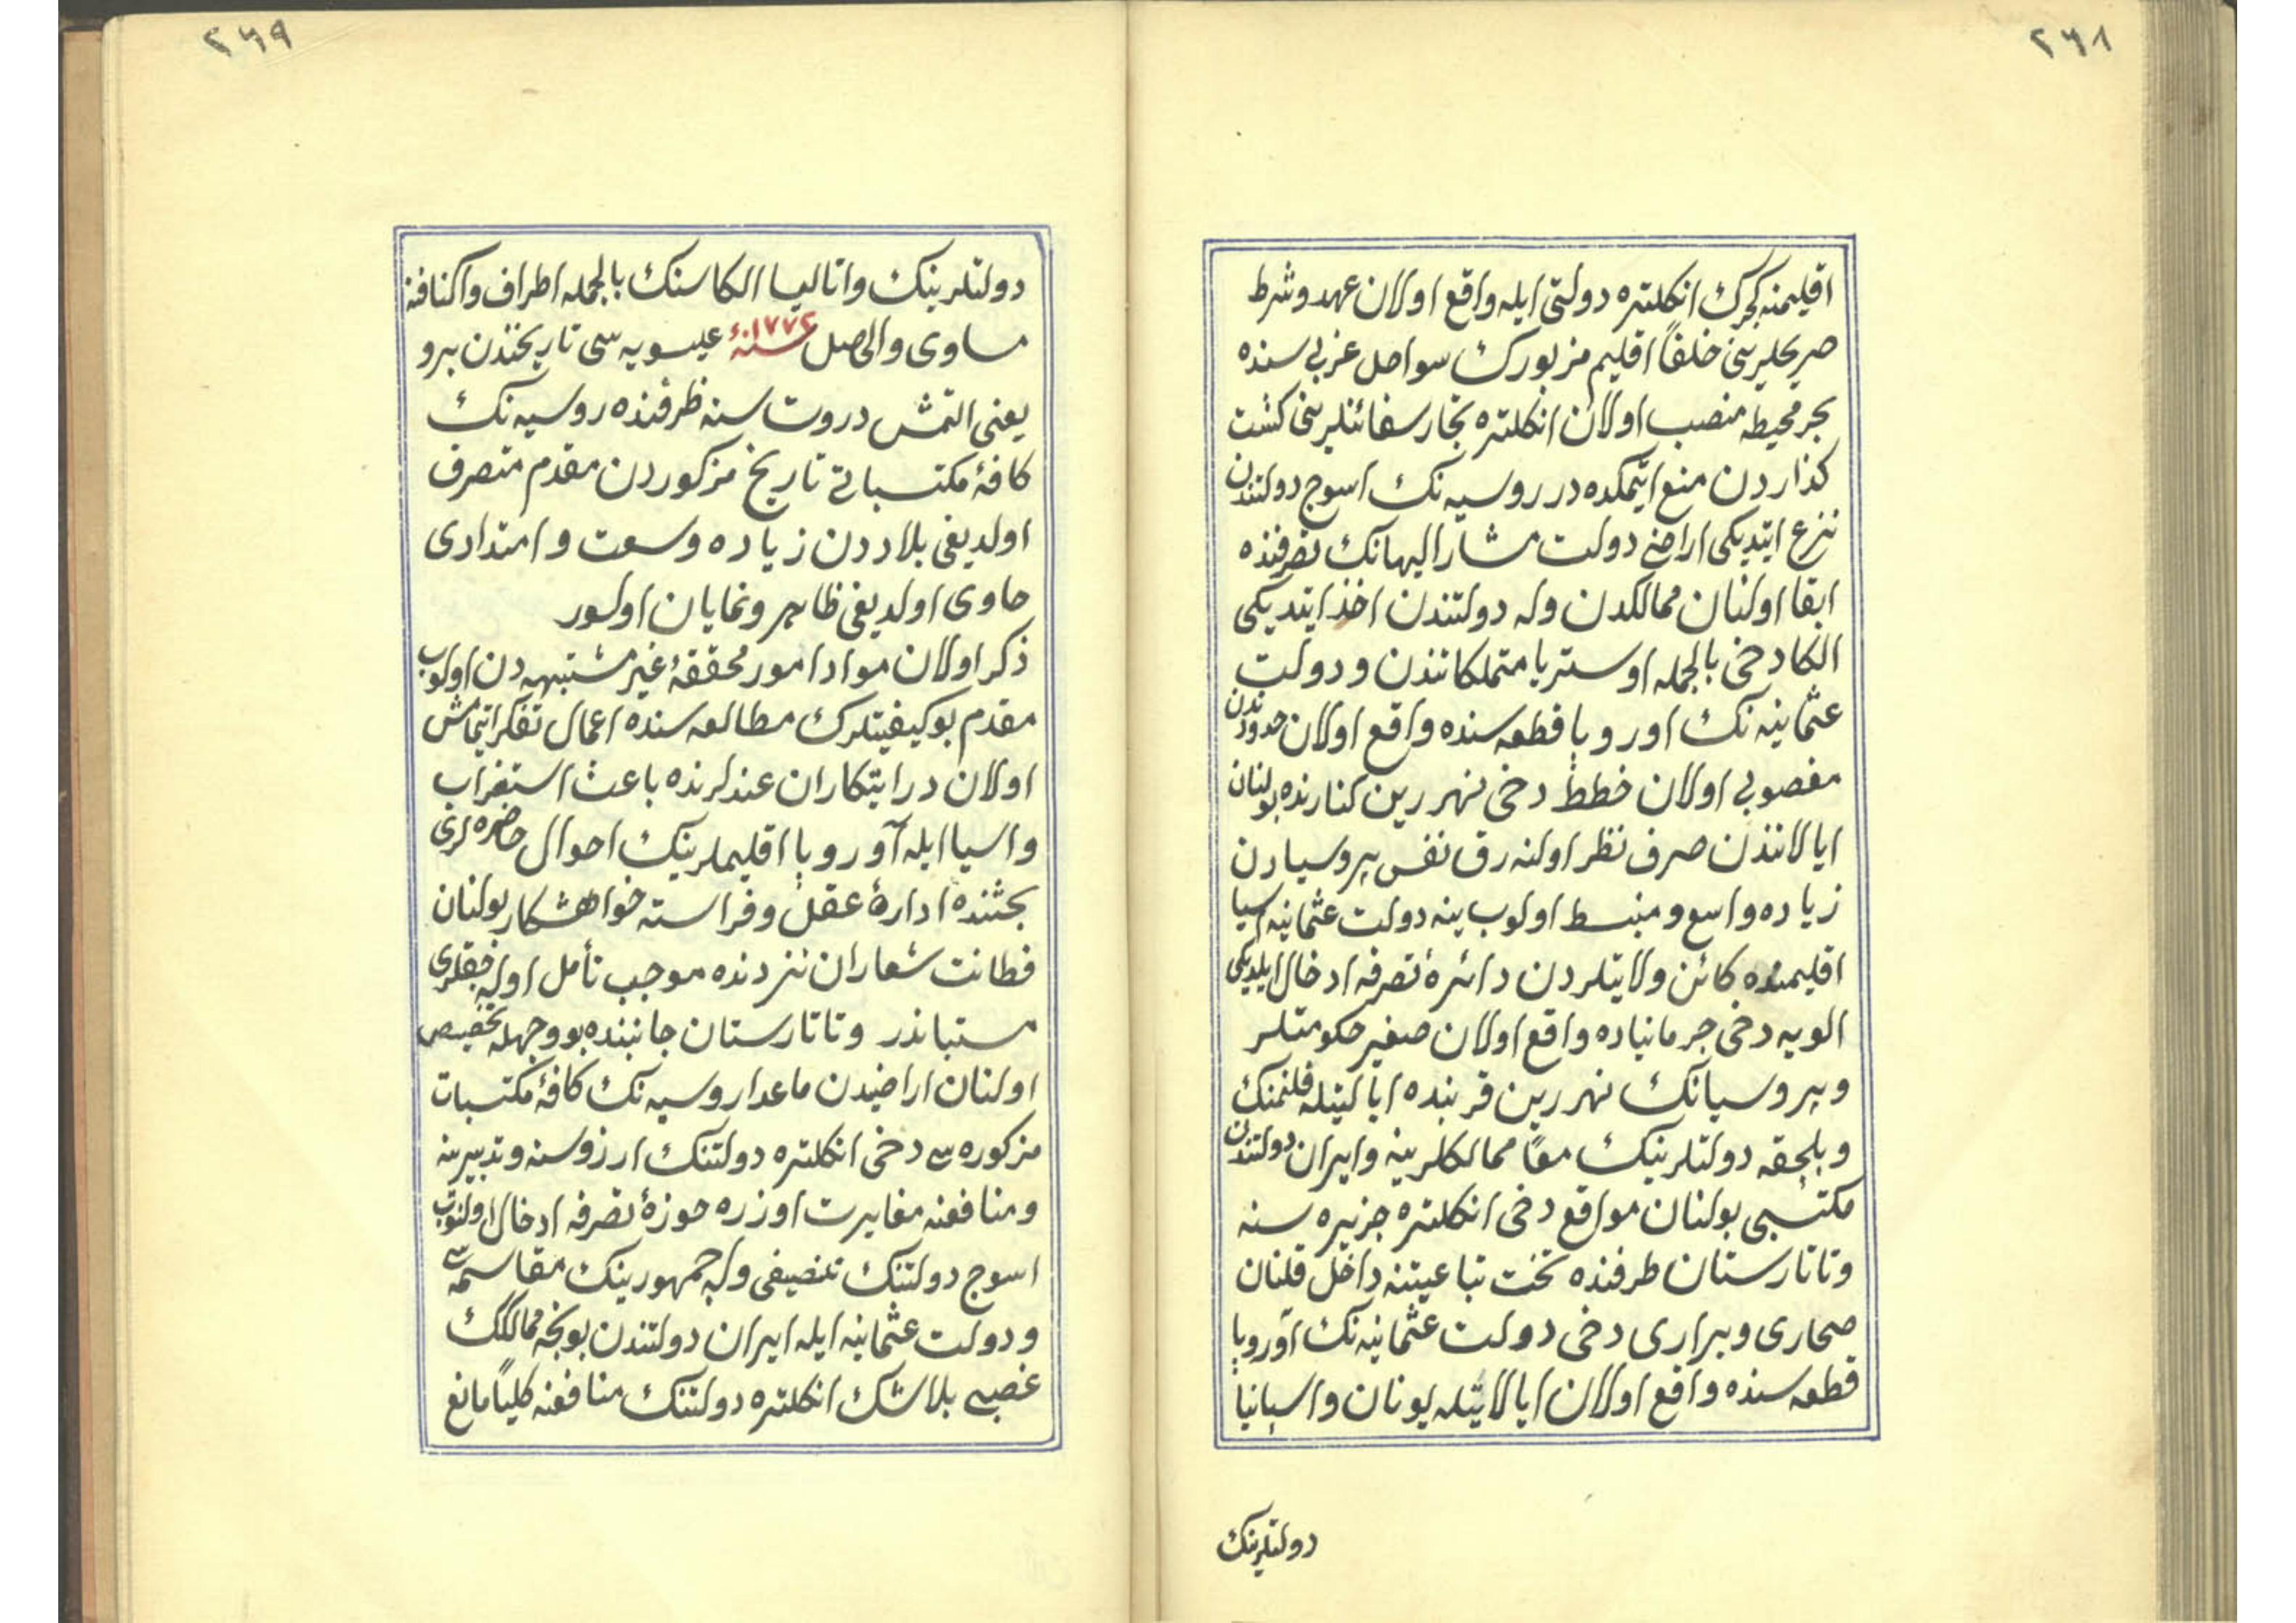 ٢٦٨
اقلیمنه کچرك انكلتره دولتی ایله واقع اولان عهد و شرط
صریحلرینی خلفاً اقلیم مزبورك سواحل غربی سنده
بحر محیطه منصب اولان انكلتره تجار سفائنلرینی كشت
كذاردن منع ایتمكده در روسیه نك اسوج دولتندن
نزع ایتدیكی اراضی دولت مشار الیهانك تصرفنده
ابقا اولنان ممالكدن و له دولتندن اخذ ایتدیكی
الكا دخی بالجمله اوستریا متملكاتندن و دولت
عثمانیه نك اوروپا قطعه سنده واقع اولان حدودندن
مغصوبی اولان خطط دخی نهر رین كنارنده بولنان
ایالاتندن صرف نظر اولنه رق نفس پروسیادن
زیاده واسع و منبسط اولوب ینه دولت عثمانیه آسیا
اقلیمنده كائن ولایتلردن دائرهٔ تصرفه ادخال ایلدیكی
الویه دخی جرمانیاده واقع اولان صغیر حكومتلر
و پروسیانك نهر رین قربنده ایالتیله فلمنك
و بلجقه دولتلرینك معاً ممالكلرینه و ایران دولتندن
مكتسبی بولنان مواقع دخی انكلتره جزیره سنه
و تاتارستان طرفنده تحت تباعیتنه داخل قلنان
صحاری و براری دخی دولت عثمانیه نك آوروپا
قطعه سنده واقع اولان ایالاتیله یونان و اسپانیا
دولتلرینك
٢٦٩
دولتلرینك و اتالیا الكاسنك بالجمله اطراف و اكنافنه
مساوی و الحاصل سنهٔ ١٧٧٢ عیسویه سی تاریخندن برو
یعنی التمش درت سنه ظرفنده روسیه نك
كافهٔ مكتسباتی تاریخ مزكوردن مقدم متصرف
اولدیغی بلاددن زیاده وسعت و امتدادی
حاوی اولدیغی ظاهر و نمایان اولور
ذكر اولان مواد امور محققهٔ غیر مشتبهه دن اولوب
مقدم بو كیفیتلرك مطالعه سنده اعمال تفكر ایتمامش
اولان درایتكاران عندلرنده باعث استغراب
و اسیا ایله آوروپا اقلیملرینك احوال حاضره لری
بحثنده ادارهٔ عقل و فراسته خواهشكار بولنان
فطانت شعاران نزدنده موجب تأمل اوله جقلری
مستباندر و تاتارستان جانبنده بو وجهله تخصیص
اولنان اراضیدن ماعدا روسیه نك كافهٔ مكتسبات
مزكوره سی دخی انكلتره دولتنك ارزوسنه و تدبیرینه
و منافعنه مغایرت اوزره حوزهٔ تصرفه ادخال اولنوب
اسوج دولتنك تنصیفی و له جمهورینك مقاسمه سی
و دولت عثمانیه ایله ایران دولتندن بونجه ممالكك
غصبی بلاشك انكلتره دولتنك منافعنه كلیاً مانع